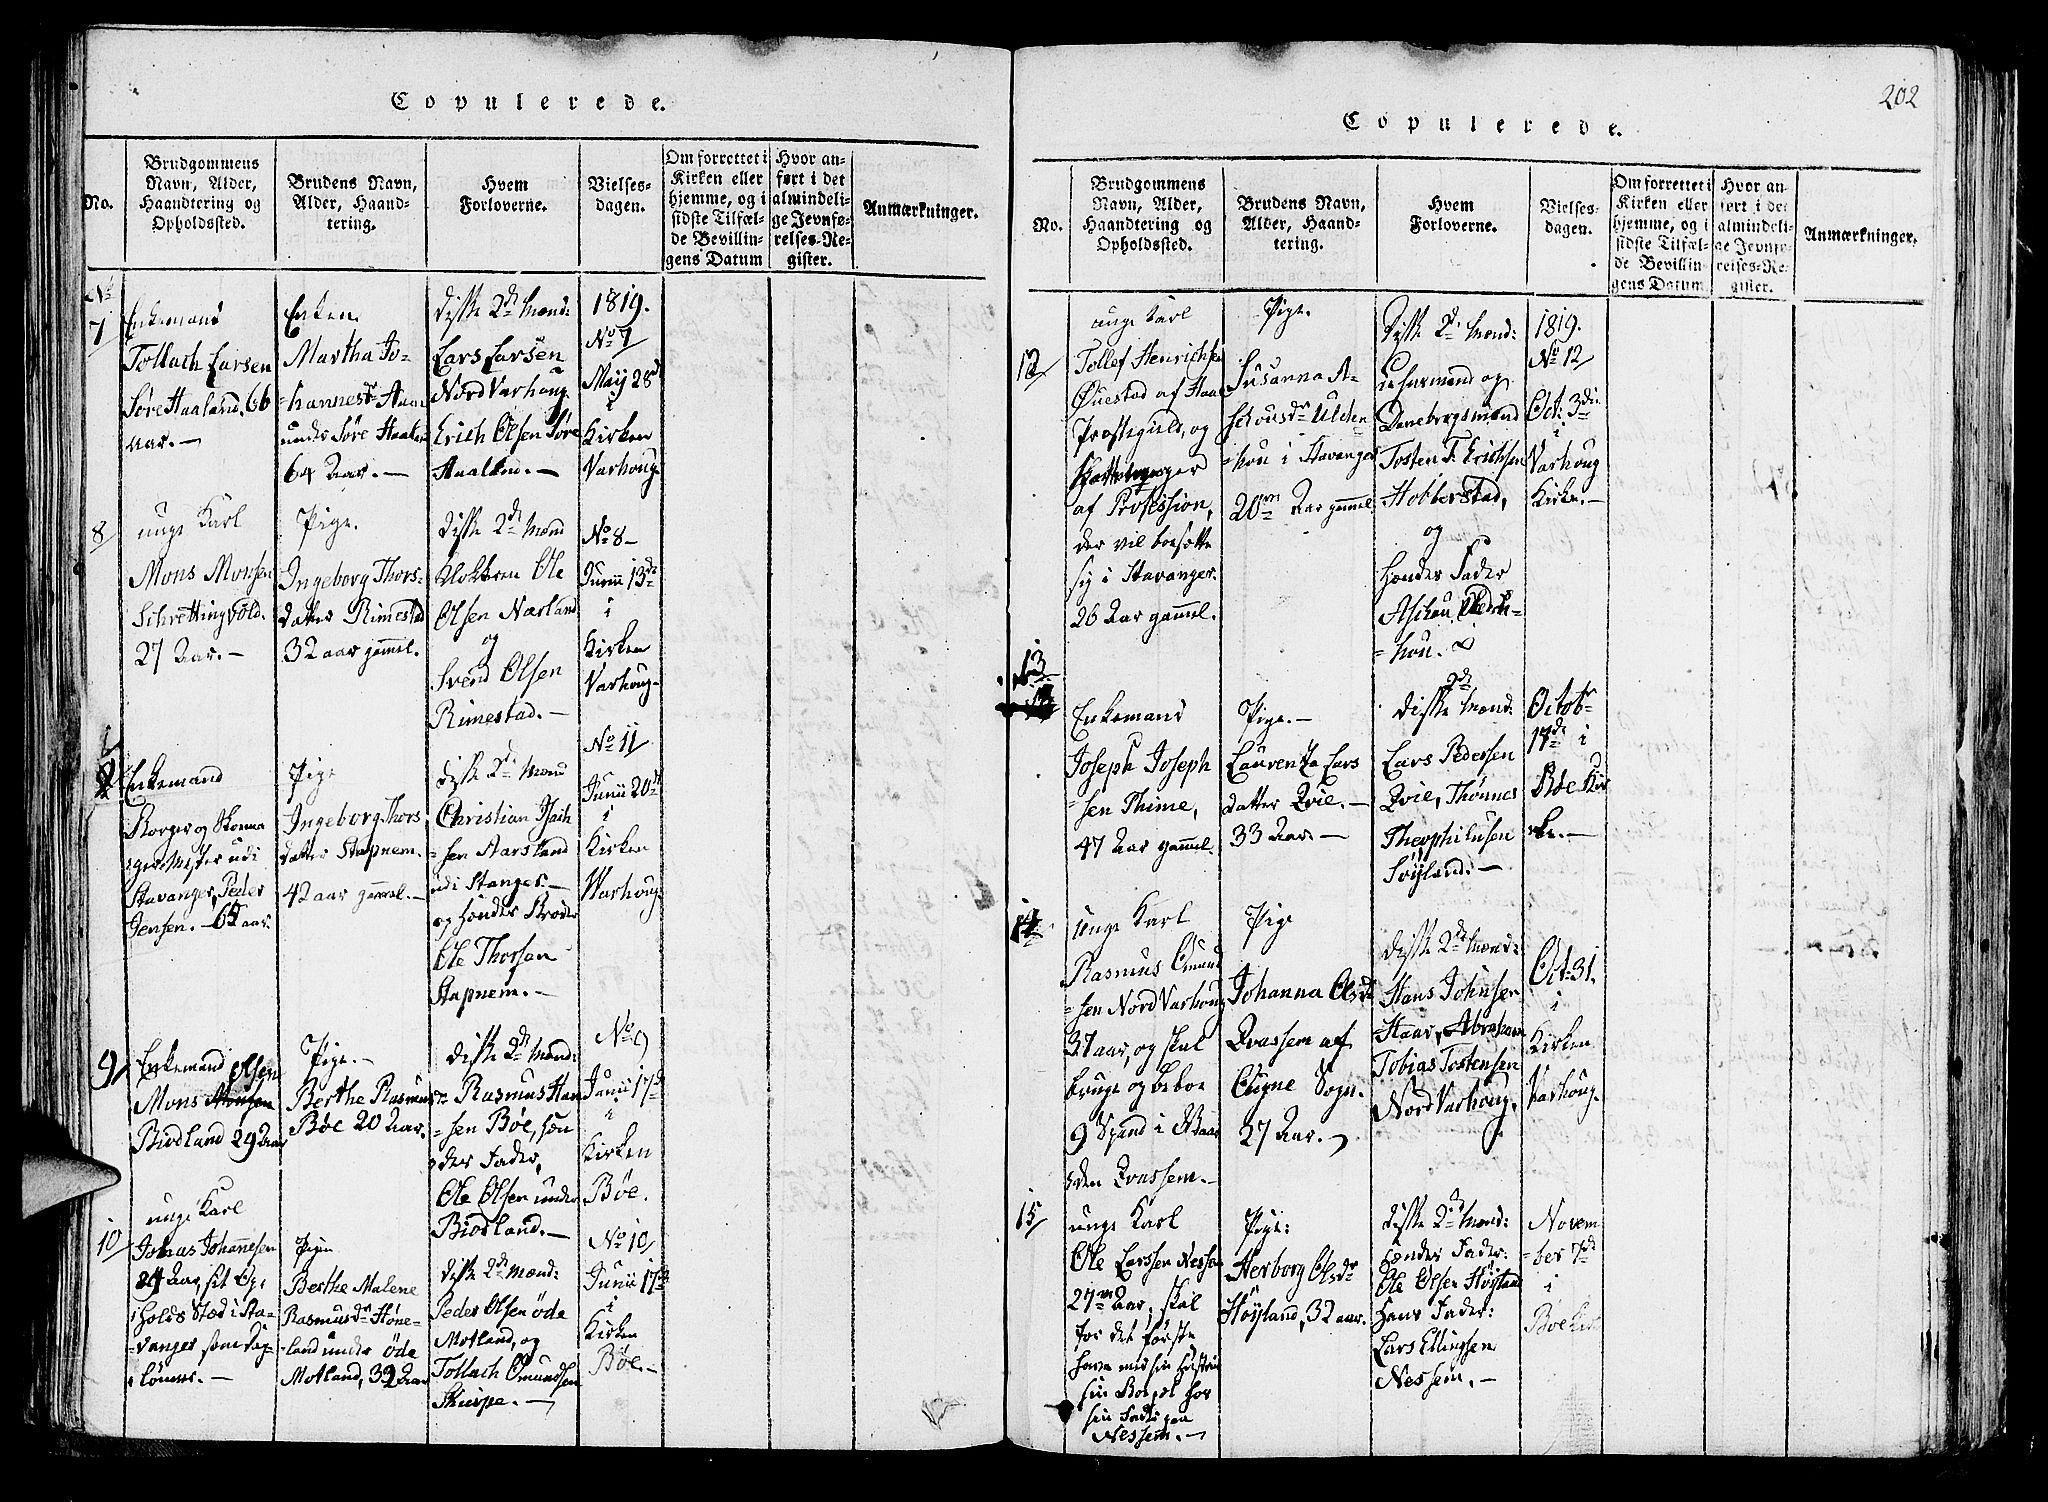 Copulerede.
No.
Brudgommens
Navn, Alder,
Haandtering og
Opholdssted.
Brudens Navn,
Alder, Haand-
tering.
Hvem
Forloverne.
Vielses-
dagen.
Om forrettet i
Kirken eller
hjemme, og i
sidste Tilfæl-
de Bevillin-
gens Datum
Hvor an-
ført i det
almindeli-
ge Jevnfø-
relses-Re-
gister.
Anmærkninger.
No
7
Enkemand
Tollach Larsen
Søre Haaland, 66
aar. —
Enken
Martha Jo-
hannesdr
under Søre
64 Aar. —
Disse 2de Mænd:
Lars Larsen
Nord Varhoug
Erich Olsen Søre
Haaland. —
1819.
No 7
May 28d
i
Kirken
Varhoug
8
unge Karl
Mons Monsen
Schrettingvold.
27 Aar. —
Pige.
Ingeborg Thors-
datter Rimestad
32 aar gammel.
Disse 2de Mænd
Ole
Olsen Nærland
og
Svend Olsen
Rimestad. —
No 8 —
Junii 13de
i
Kirken
Varhoug.
Enkemand
Borger og Skoma
ger Mester udi
Stavanger, Peder
Jensen. — aar.
Pige
Ingeborg Thors
datter Stapnem.
42 aar gammel. —
Disse 2de Mænd
Christian Isach
sen Aarsland
udi
og hendes Broder
Ole Thorsen
Stapnem. —
No 11
Junii 20de
i
Kirken
Varhoug.
9
Enkemand
Mons Olsen
Biodland 29 Aar
Pige. —
Berthe Rasmusdr
Bøe 20 Aar.
Disse 2de Mænd:
Rasmus Han
sen Bøe, hen
des Fader,
Ole Olsen under
Biodland. —
No 9
Junii 17de
i
Kirken
Bøe.
10
unge Karl
Jonas Johannesen
Aar, sit Op-
holds Sted i Sta-
vanger som Dag-
lønner. —
Pigen
Berthe Malene
Rasmusdr Høne-
land under öde
Motland, 32 Aar
Disse 2de Mænd:
Peder Olsen öde
Motland, og
Tollach Omundsen
Skierpe. —
No 10
Junii 17de
i
Kirken
Bøe. —
202
Copulerede.
No.
Brudgommens
Navn, Alder,
Haandtering og
Opholdssted.
Brudens Navn,
Alder, Haand-
tering.
Hvem
Forloverne.
Vielses-
dagen.
Om forrettet i
Kirken eller
hjemme, og i
sidste Tilfæl-
de Bevillin-
gens Datum
Hvor an-
ført i det
almindeli-
ge Jevnfø-
relses-Re-
gister.
Anmærkninger.
12
unge Karl
Tollef Henrichsen
af Haae
Præstegield, og
af Profession,
der vil bosætte
sig i Stavanger.
26 Aar gammel.
Pige.
Susanna A-
i Stavanger
20 Aar gammel
Disse 2de Mænd:
Lehnsmand og
Danebrogsmand
Tosten T. Erichsen
Hobberstad,
og
hendes Fader
1819.
No 12
Oct. 3die
i
Varhoug
Kirke. —
13
Enkemand
Joseph Joseph
sen Thime,
47 Aar gammel.
Pige. —
Laurentza Lars
datter Qvie. —
33 Aar. —
Disse 2de Mænd:
Lars Pedersen
Qvie, Thønnes
Theophilusen
Söyland. —
Octob-
17de i
Böe Kir
ke. —
14
unge Karl
Rasmus Omund
sen Nord Varhoug
37 aar, og skal
bruge og beboe
9 Spand i
Qvassem. —
Pige
Johanna Olsdr
Qvassem af
Ougne Sogn.
27 Aar. —
Disse 2de Mænd:
Hans Johnsen
Haar, Abraham
Tobias Tostensen
Nord Varhoug.
Oct. 31.
i
Kirken
Varhoug.
15
unge Karl
Ole Larssen Nessem
27 Aar, skal
for det første
have med sin Hustru
sin Bopæl hos
sin Fader paa
Nessem. —
Pige:
Herborg Olsdr
Höyland, 32 aar.
Disse 2de Mænd:
hendes Fader:
Ole Olsen Höyland
Hans Fader:
Lars Ellingsen
Nessem. —
Novem
ber 7de
i
Bøe